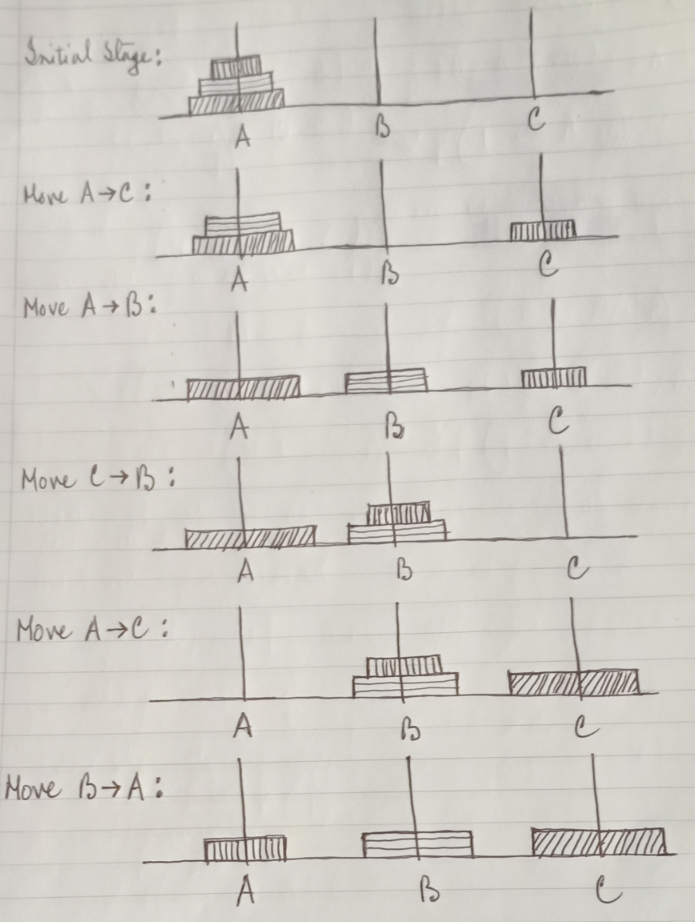 Initial Stage:
A B C
Move A→C:
A B C
Move A→B:
A B C
Move C→B:
A B C
Move A→C:
A B C
Move B→A:
A B C